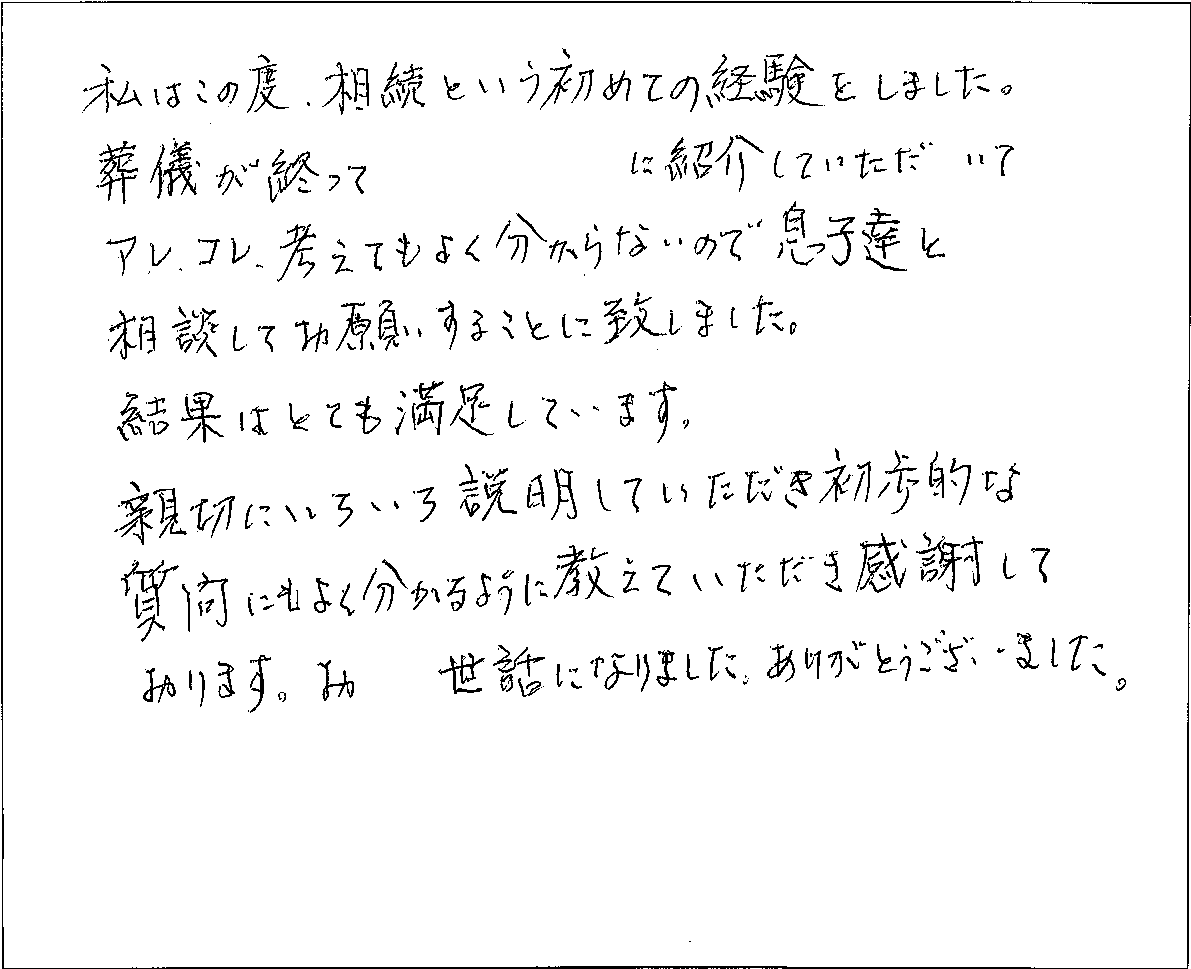 私はこの度、相続という初めての経験をしました。
葬儀が終って に紹介していただいて
アレ、コレ、考えてもよく分からないので息子達と
相談してお願いすることに致しました。
結果はとても満足しています。
親切にいろいろ説明していただき初歩的な
質問にもよく分かるように教えていただき感謝して
おります。お 世話になりました。ありがとうございました。